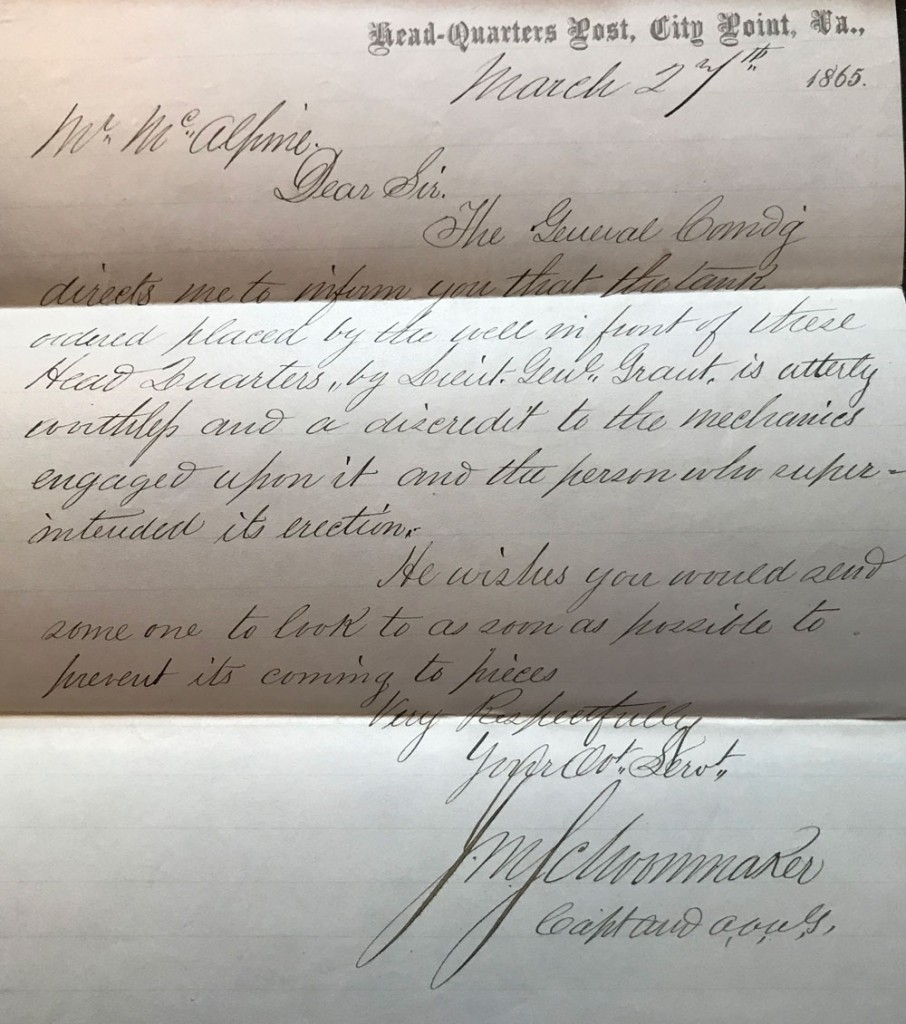 Head-Quarters Post, City Point, Va.,
March 27th 1865.
Mr. McAlpine.
Dear Sir.
The General Comdg
directs me to inform you that the tank
ordered placed by the well in front of these
Head Quarters, by Lieut. Genl. Grant, is utterly
worthless and a discredit to the mechanics
engaged upon it and the person who super-
intended its erection.
He wishes you would send
some one to look to as soon as possible to
prevent its coming to pieces
Very Respectfully
Your Obt. Servt.
J. M. Schoonmaker
Capt and